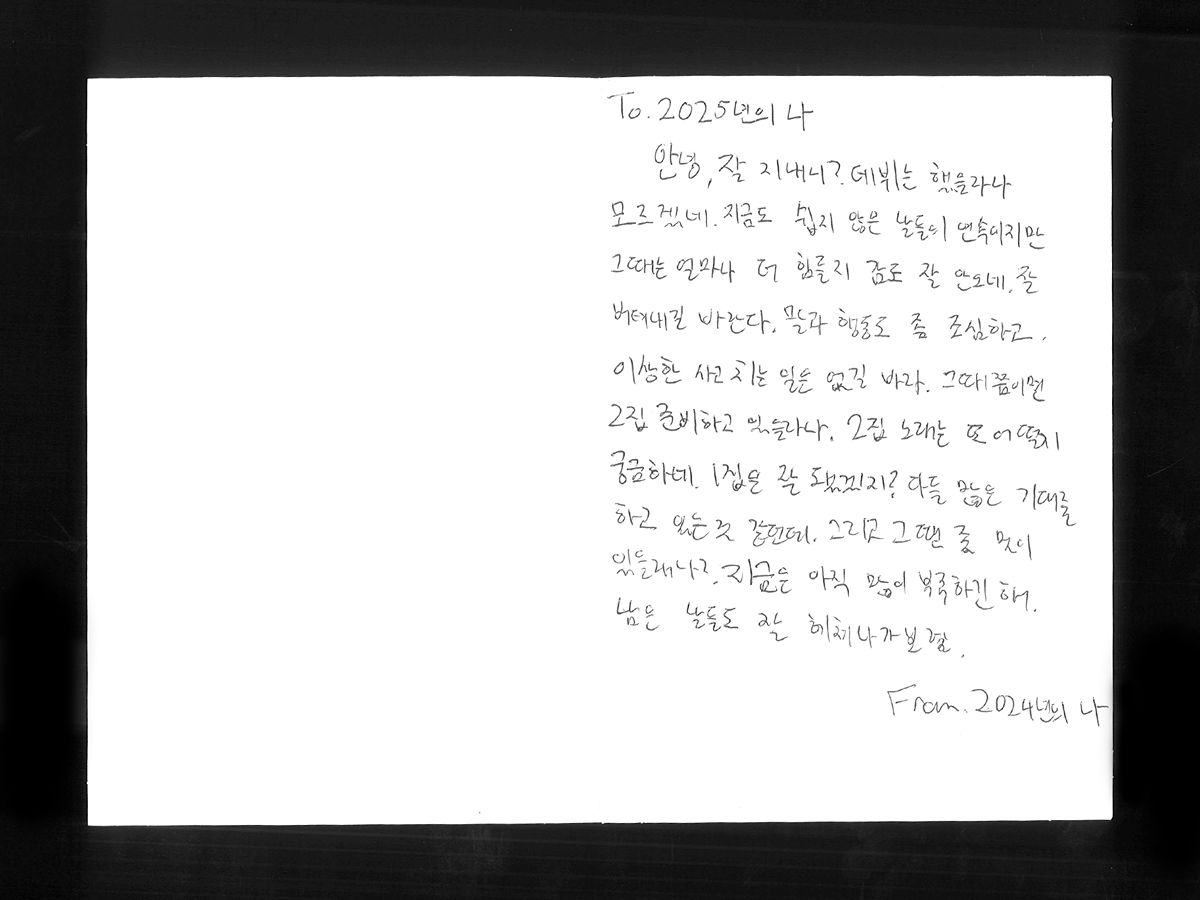 To. 2025년의 나
안녕, 잘 지내니? 데뷔는 했을라나
모르겠네. 지금도 쉽지 않은 날들의 연속이지만
그때는 얼마나 더 힘들지 감도 잘 안오네. 잘
버텨내길 바란다. 말과 행동도 좀 조심하고.
이상한 사고 치는 일은 없길 바라. 그때쯤이면
2집 준비하고 있을라나. 2집 노래는 또 어떨지
궁금하네. 1집은 잘 됐겠지? 다들 많은 기대를
하고 있는 것 같던데. 그리고 그 땐 좀 멋이
있을래나?. 지금은 아직 많이 부족하긴 해.
남은 날들도 잘 헤쳐나가보렴.
From. 2024년의 나